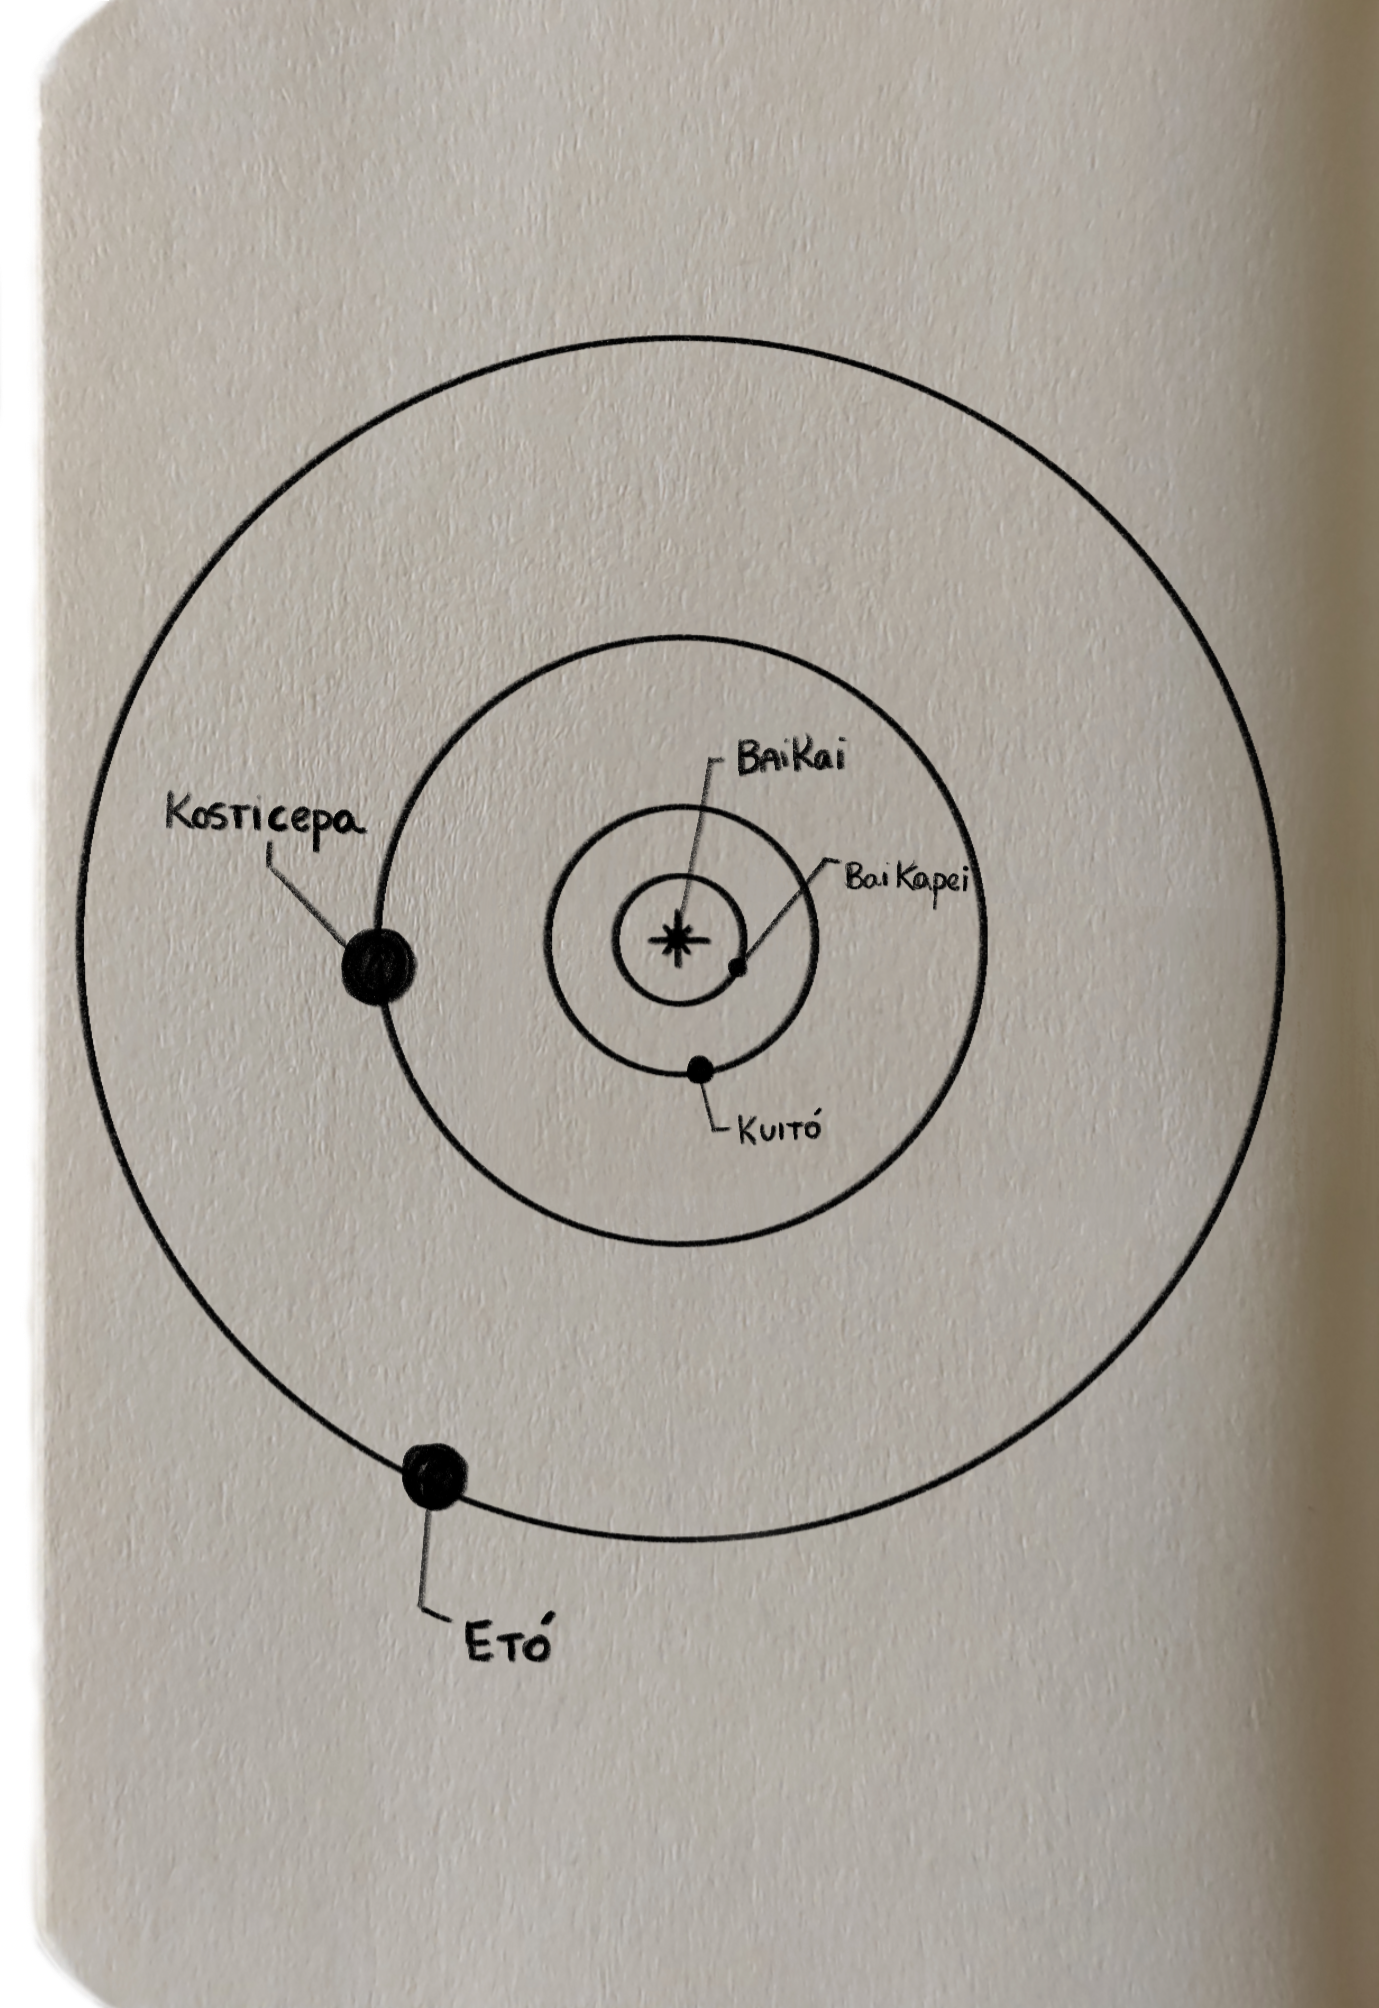 BAiKai
Kosticepa
BaiKapei
Kuitó
Etó